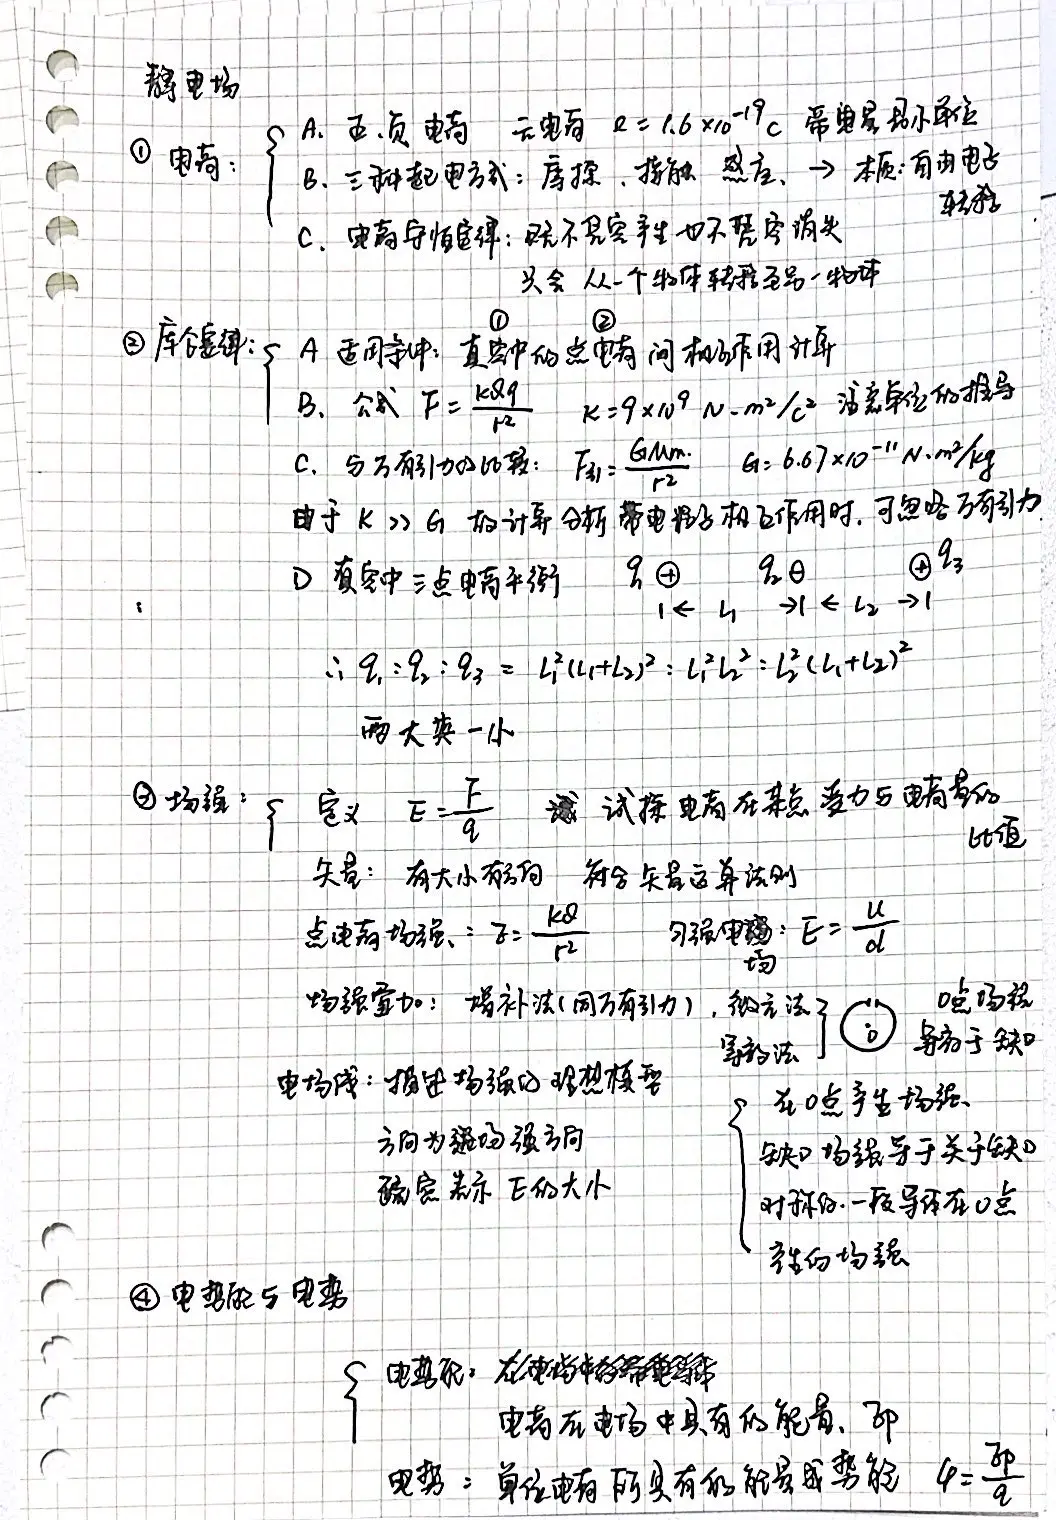 静电场
① 电荷:
A. 正.负 电荷 元电荷 e=1.6×10⁻¹⁹C 带电量最小单位
B. 三种起电方式: 摩擦、接触 感应、→ 本质:自由电子
转移
C. 电荷守恒定律: 既不凭空产生 也不凭空消失
只会 从一个物体转移至另一物体
② 库仑定律:
① ②
A 适用条件: 真空中的点电荷间相互作用计算
B. 公式 F=kQq/r² K=9×10⁹ N·m²/C² 注意单位的推导
C. 与万有引力的比较: F引=GMm/r² G=6.67×10⁻¹¹N·m²/kg
由于 K >> G 故计算分析带电粒子相互作用时.可忽略万有引力
D 真空中三点电荷平衡 q₁ ⊕ q₂ ⊖ ⊕ q₃
|← L₁ →|← L₂ →|
∴ q₁:q₂:q₃ = L₁²(L₁+L₂)²:L₁²L₂²:L₂²(L₁+L₂)²
两大夹一小
③ 场强:
定义 E=F/q 试探电荷在某点受力与电荷量的
比值
矢量: 有大小有方向 符合矢量运算法则
点电荷场强、: E=kQ/r² 匀强电场: E=u/d
场强叠加: 增补法(同万有引力), 微元法
等效法
O点场强
等效于缺口
在O点产生场强、
缺口场强等于关于缺口
对称的.一段导体在O点
产生的场强
电场线: 描述场强的理想模型
方向为场强方向
疏密表示 E的大小
④ 电势能与电势
电势能:
电荷在电场中具有的能量、Ep
电势: 单位电荷所具有的能量或势能 φ=Ep/q